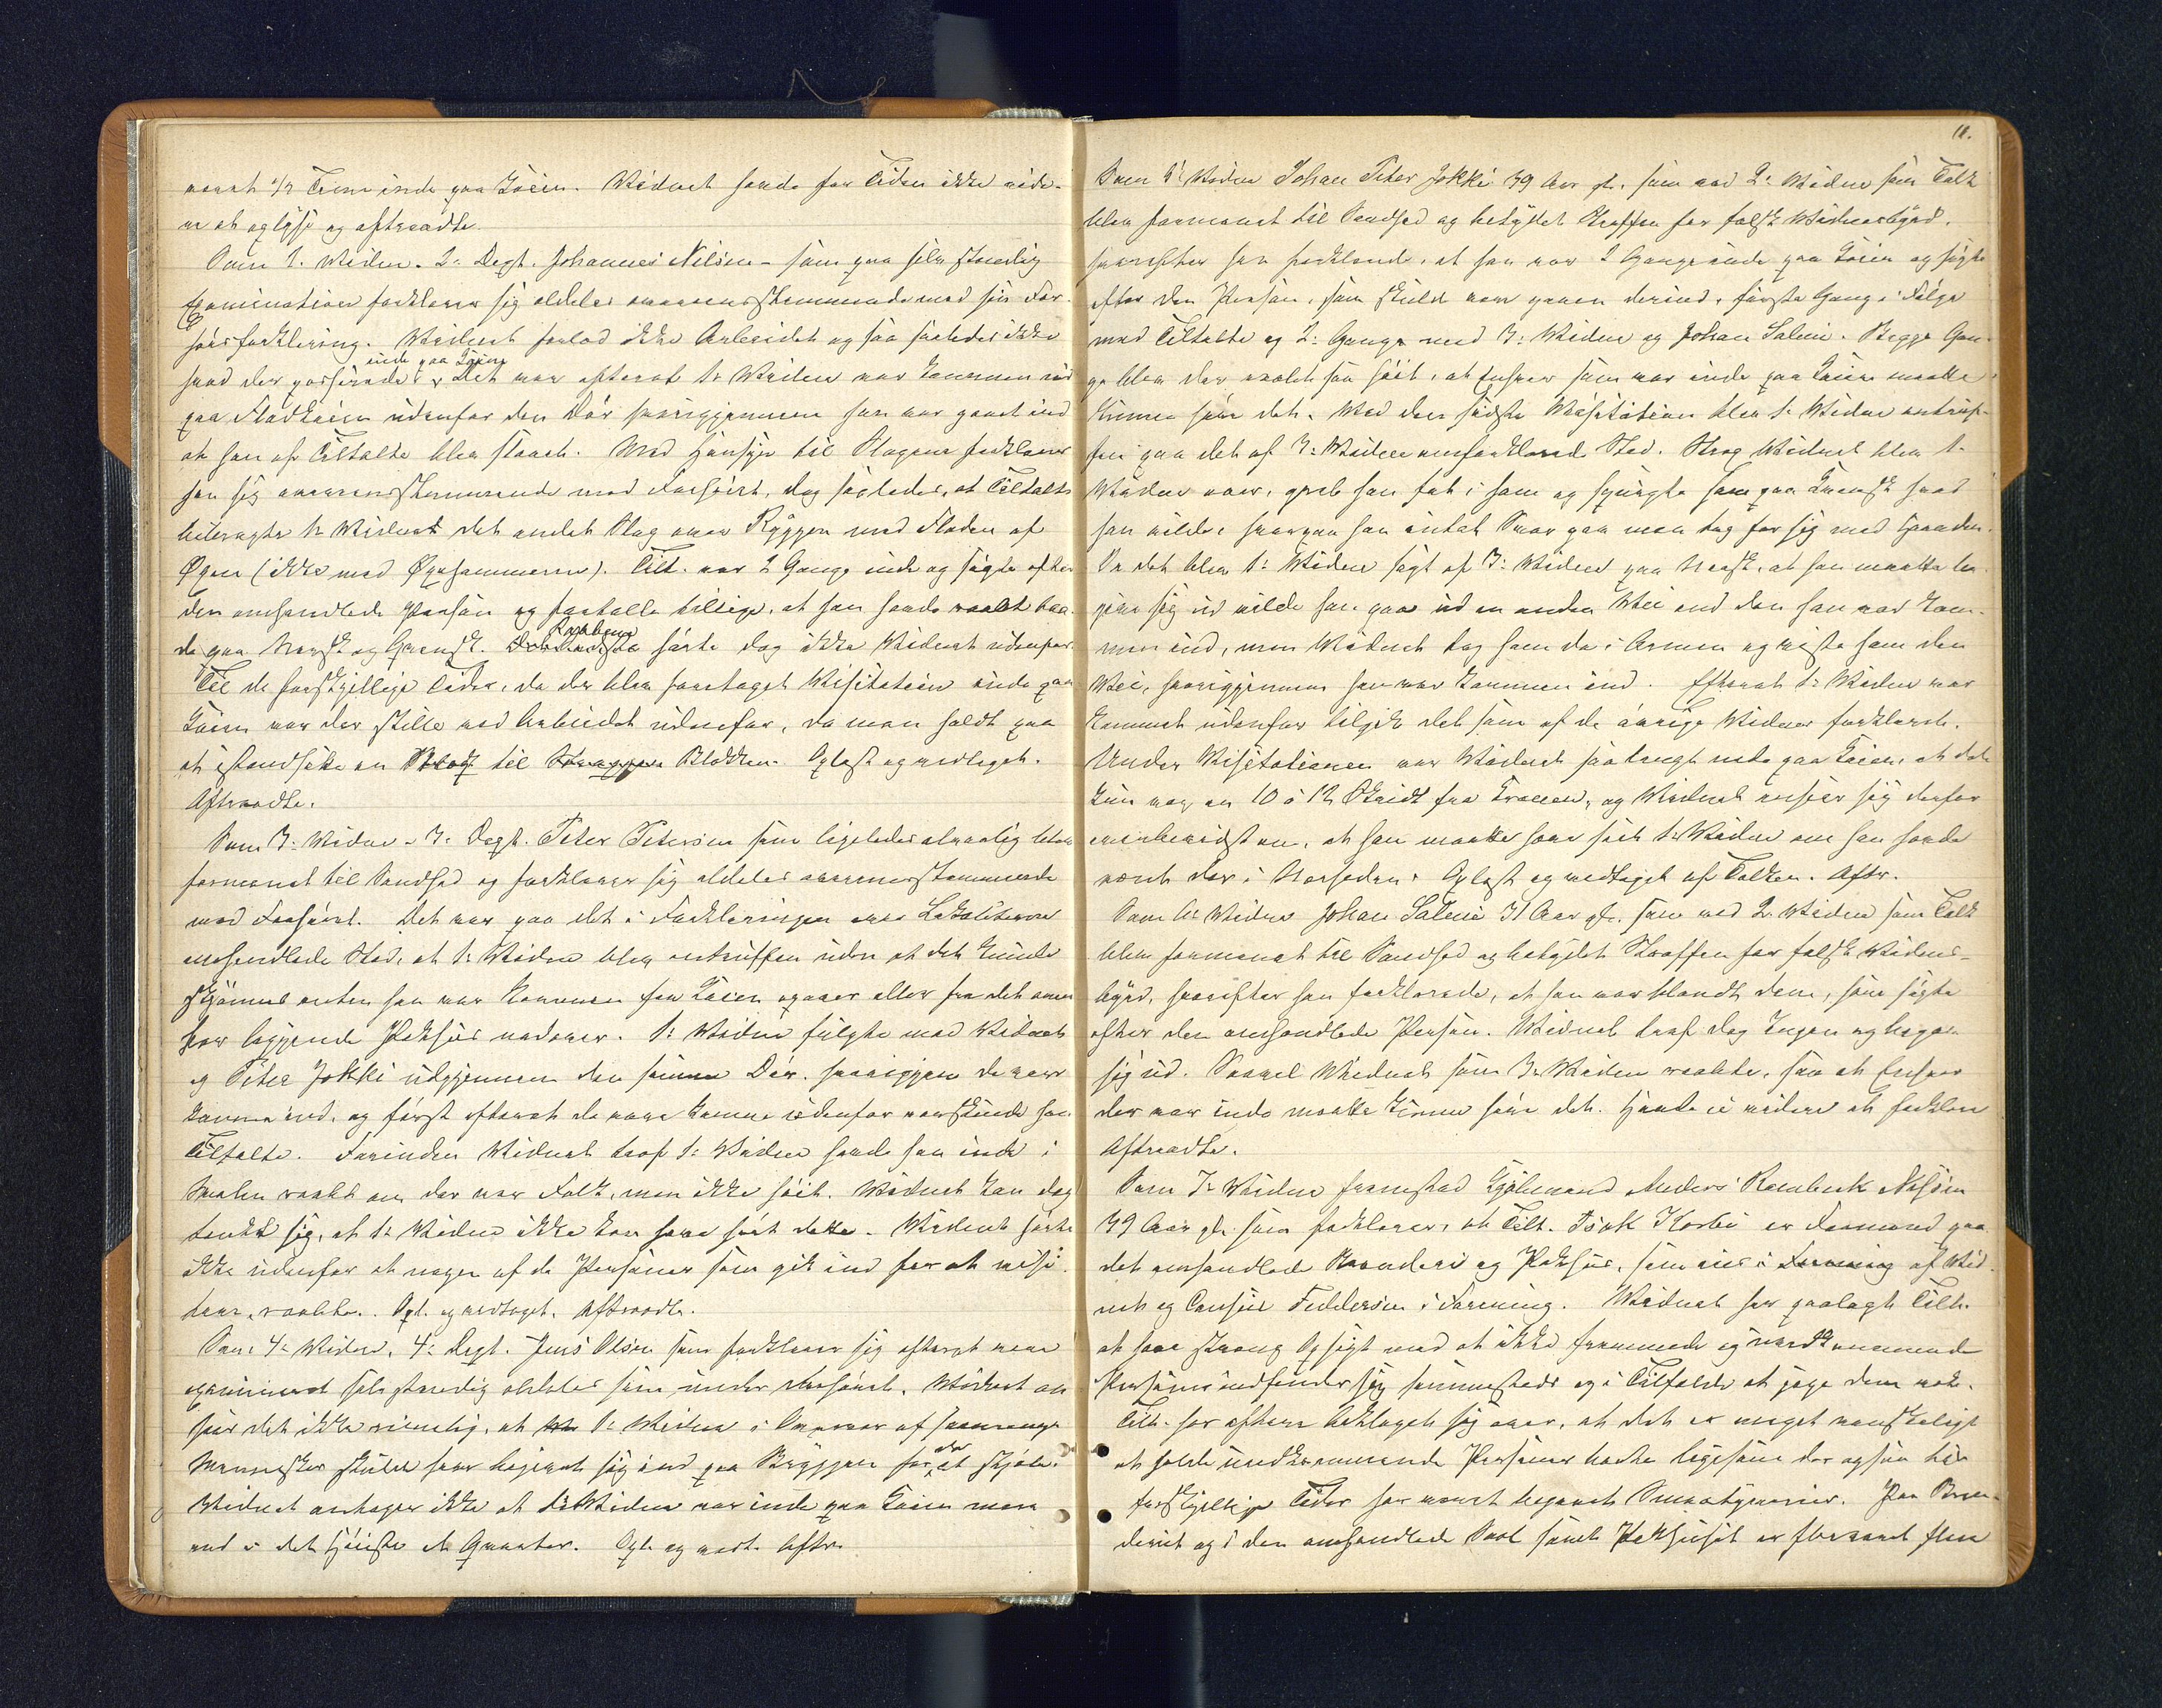 været 1/2 Time inde paa Kaien. Vidnet havde for Tiden ikke vide-
re at oplyse og aftraadte.
Som 2. Vidne. 2. Dept. Johannes Nilsen - som paa selvstændig
Examination forklarer sig aldeles overensstemmende med sin For-
hørsforklaring. Vidnet forlod ikke Arbeidet og saa saaledes ikke
inde paa Kaien
hvad der passerede. Det var efterat 1. Vidne var kommen ud
paa Flodkaien udenfor den Dør hvorigjennem han var gaaet ind
at han af Tiltalte blev slaaet. Med Hensyn til Slagene forklarer
han sig overensstemmende med Forhøret, dog saaledes, at Tiltalte
bibragte 1. Vidnet det andet Slag over Ryggen med Fladen af
Øxen (ikke med Øxehammeren). Tilt. var 2 Gange inde og søgte efter
den omhandlede Person og fortalte tillige, at han havde raabt baa-
Raabene
de paa Norsk og Kvensk. hørte dog ikke Vidnet udenfor.
Til de forskjellige Tider, da der blev foretaget Visitation inde paa
Kaien var der stille ved Arbeidet udenfor, da man holdt paa
at istandsætte en til Blokken. Oplæst og vedtaget.
Aftraadte.
Som 3. Vidne - 3. Dept. Peter Petersen som ligeledes alvorlig blev
formanet til Sandhed og forklarer sig aldeles overensstemmende
med Forhøret. Det var paa det i Forklaringen over Lokaliterne
omhandlede Sted, at 1. Vidne blev antruffen uden at det kunde
skjønnes enten han var kommen fra Kaien opover eller fra det oven
for liggende Pakhus nedover. 1. Vidne fulgte med Vidnet
og Peter Jokki udgjennem den samme Dør, hvorigjen de vare
komne ind, og først efterat de vare komne udenfor
Tiltalte. Forinden Vidnet traf 1. Vidne havde han inde i
raabt om der var Folk, men ikke høit. Vidnet kan dog
tænkt sig, at 1. Vidne ikke kan have hørt dette. Vidnet hørte
ikke udenfor at nogen af de Personer som gik ind for at visi-
tere, raabte. Opl. og vedtaget. Aftraadte.
Som 4. Vidne, 4. Dept. Jens Olsen som forklarer sig efterat være
examineret selvstændig aldeles som under Forhøret. Vidnet an-
ser det ikke rimelig, at 1. Vidne i af saamange
Mennesker skulde have begivet sig ind paa Bryggen for der at stjæle.
Vidnet antager ikke at 1. Vidne var inde paa Kaien mere
end i det Høieste et Qvarter. Opl. og vedt. Aftr.
11.
Som 5. Vidne Johan Peter Jokki 39 Aar gl. som ved 2. Vidne som Tolk
blev formanet til Sandhed og betydet Straffen for falsk Vidnesbyrd,
hvorefter han forklarede, at han var 2 Gange inde paa Kaien og søgte
efter den Person, som skulde være gaaen derind, første Gang i Følge
med Tiltalte og 2. Gange med 3. Vidne og Johan Salmi. Begge Gan-
ge blev der raabt saa høit, at Enhver som var inde paa Kaien maatte
kunne høre det. Ved den sidste Visitation blev 1. Vidne antruf-
fen paa det af 3. Vidne omforklarede Sted. Strax Vidnet blev 1.
Vidne vaer, greb han fat i ham og spurgte ham paa Kvensk hvad
han vilde, hvorpaa han intet Svar gav men tog for sig med Haanden.
Da det blev 1. Vidne sagt af 3. Vidne paa Norsk, at han maatte be-
give sig ud vilde han gaa ud en anden Vei end den han var kom-
men ind, men Vidnet tog ham da i Armen og viste ham den
Vei, hvorigjennem han var kommen ind. Efterat 1. Vidne var
kommet udenfor tilgik det som af de øvrige Vidner forklaret.
Under Visitationen var Vidnet saa langt nede paa Kaien, at det
kun var en 10 à 12 Skridt fra Kranen, og Vidnet anser sig derfor
overbevist om, at han maatte have seet 1. Vidne om han havde
været der i Nærheden. Oplæst og vedtaget af Tolken. Aftr.
Som 6. Vidne Johan Salmi 31 Aar gl. som ved 2. Vidne som Tolk
blev formanet til Sandhed og betydet Straffen for falsk Vidnes-
byrd, hvorefter han forklarede, at han var blandt dem, som søgte
efter den omhandlede Person. Vidnet traf dog Ingen og begav
sig ud. Saavel Vidnet som 3. Vidne raabte, saa at Enhver
der var inde maatte kunne høre det. Havde ei videre at forklare
Aftraadte.
Som 7. Vidne fremstod Kjøbmand Anders Rambeck Nilsen
39 Aar gl. som forklarer, at Tilt. Isak Korbi er Formand paa
det omhandlede Branderi og Pakhus, som eies i Forening af Vid-
net og Consul Feddersen i Forening. Vidnet har paalagt Tilt.
at have streng Opsigt med at ikke fremmede og uvedkommende
Personer indfinder sig sammesteds og i Tilfælde at jage dem væk.
Tilt. har oftere beklaget sig over, at det er meget vanskeligt
at holde uvedkommende Personer borte ligesom der ogsaa til
forskjellige Tider har været begaaet Smaatyverier. Paa Bran-
deriet og i den omhandlede Bod samt Pakhuset er flere